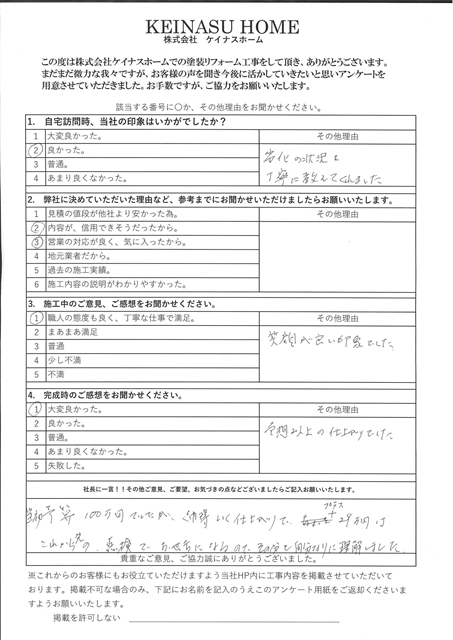 KEINASU HOME
株式会社　ケイナスホーム
この度は株式会社ケイナスホームでの塗装リフォーム工事をして頂き、ありがとうございます。
まだまだ微力な我々ですが、お客様の声を聞き今後に活かしていきたいと思いアンケートを
用意させていただきました。お手数ですが、ご協力をお願いいたします。
該当する番号に〇か、その他理由をお聞かせください。
1. 自宅訪問時、当社の印象はいかがでしたか？
1 大変良かった。 その他理由
2 良かった。
3 普通。
4 あまり良くなかった。
劣化の状況を
丁寧に教えてくれました
2. 弊社に決めていただいた理由など、参考までにお聞かせいただけましたらお願いいたします。
1 見積の値段が他社より安かった為。 その他理由
2 内容が、信用できそうだったから。
3 営業の対応が良く、気に入ったから。
4 地元業者だから。
5 過去の施工実績。
6 施工内容の説明がわかりやすかった。
3. 施工中のご意見、ご感想をお聞かせください。
1 職人の態度も良く、丁寧な仕事で満足。 その他理由
2 まあまあ満足
3 普通
4 少し不満
5 不満
笑顔が良い印象でした
4. 完成時のご感想をお聞かせください。
1 大変良かった。 その他理由
2 良かった。
3 普通。
4 あまり良くなかった。
5 失敗した。
予想以上の仕上がりでした
社長に一言！！その他ご意見、ご要望、お気づきの点などございましたらご記入お願いいたします。
100万円でしたが、納得いく仕上がりで、プラス29万円は
これから先の、点検でお世話になるので、その分と自分なりに理解しました
貴重なご意見、ご協力誠にありがとうございました。
※これからのお客様にもお役立ていただけますよう当社HP内に工事内容を掲載させていただいて
おります。掲載不可な場合のみ、下記にお名前を記入のうえこのアンケート用紙をご返却くださいま
すようお願いいたします。
掲載を許可しない